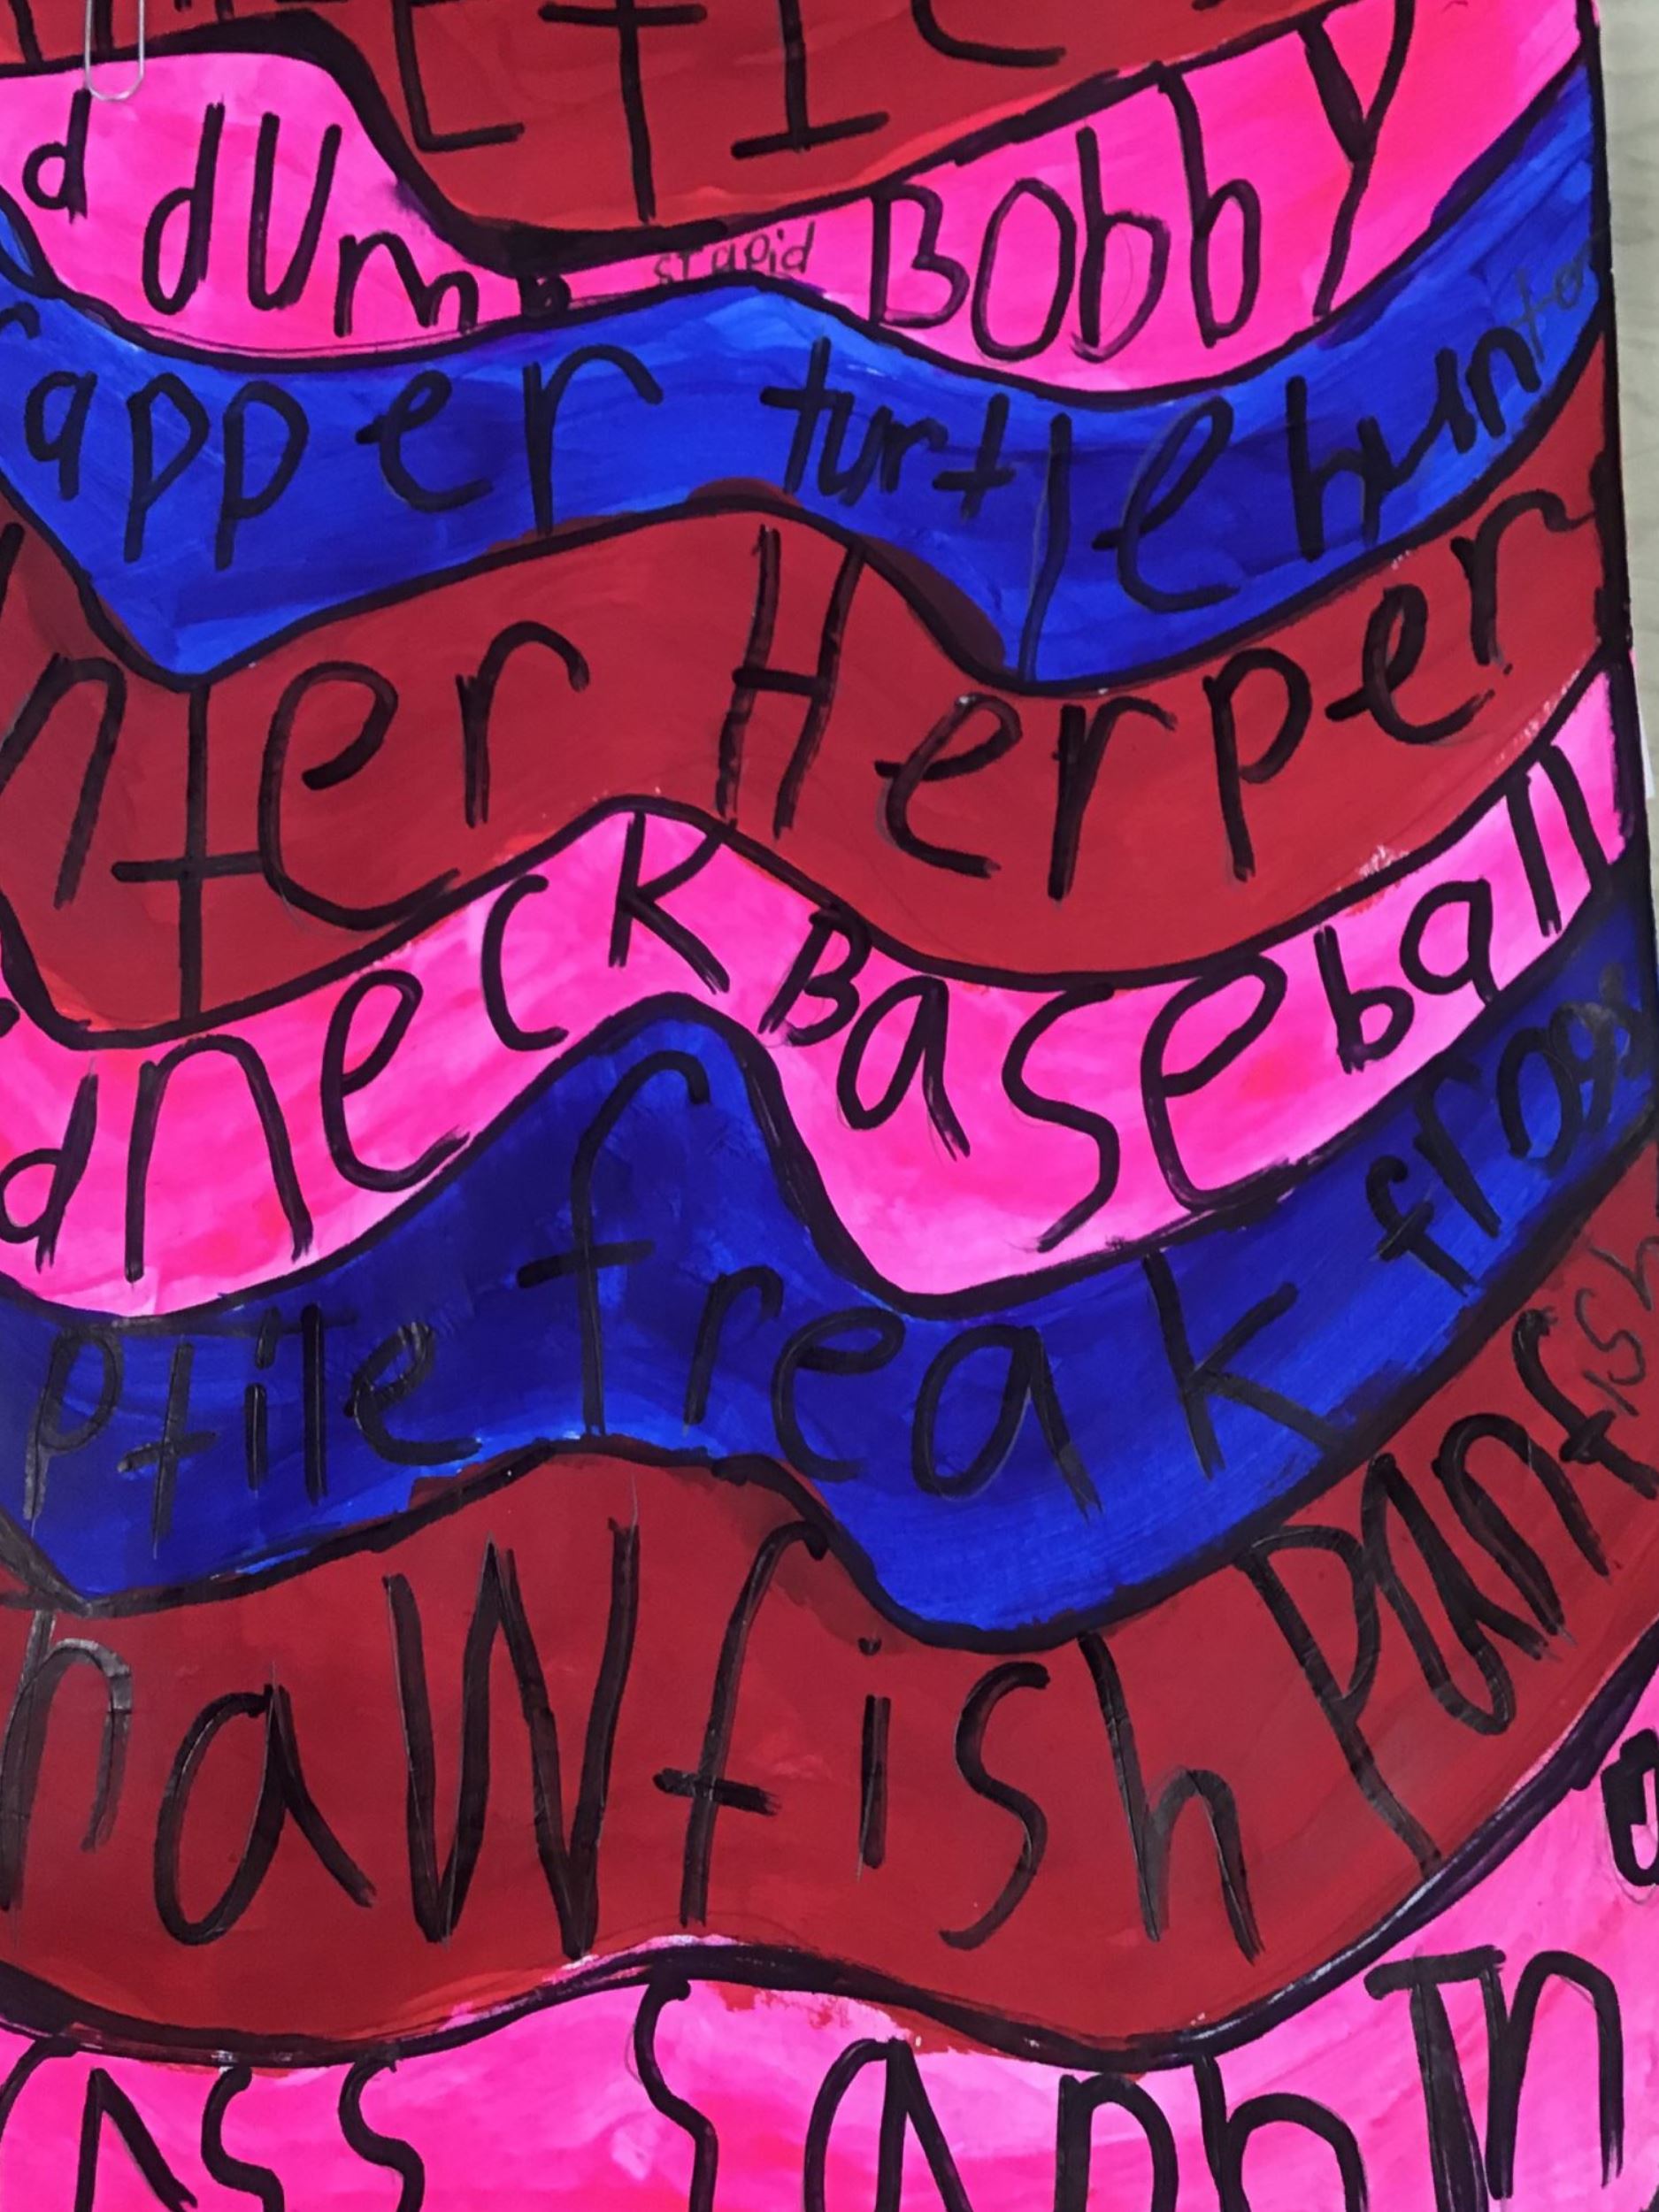 d dumb stupid Bobby
apper turtle hunter
nter Herper
dneck Baseball
ptile freak frogs
hawfish Panfish
ass